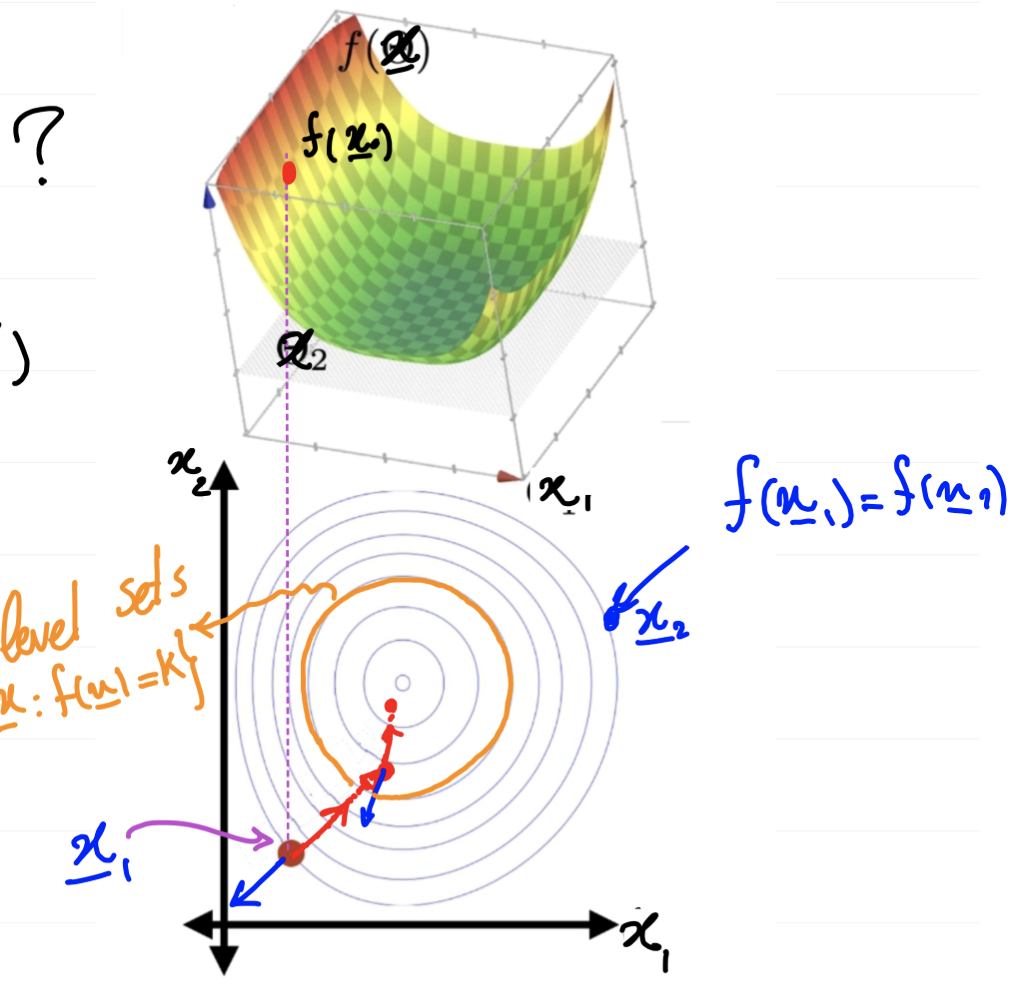 ?
f(x)
f(x₀)
)
x₂
x₂
x₁
f(x₁)=f(x₂)
level sets
x₂
x : f(x)=k}
x₁
x₁